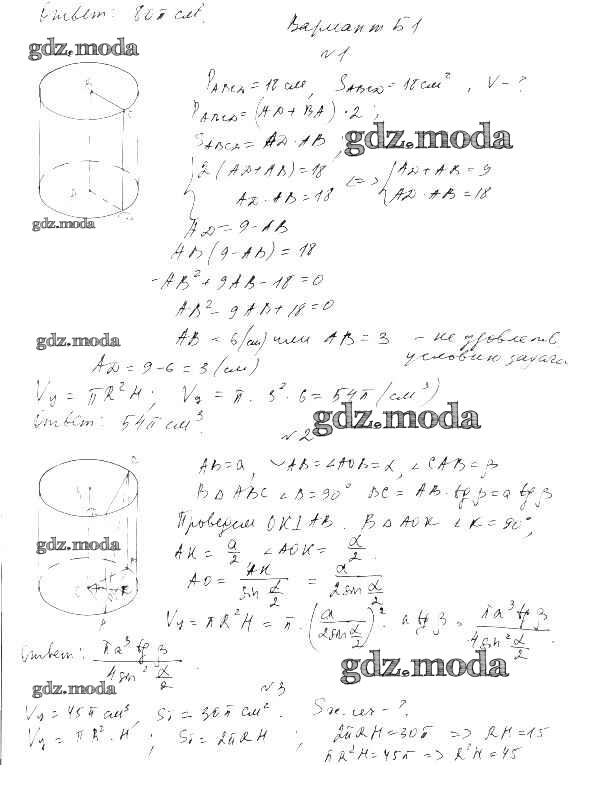 Ответ: 80π см².
Вариант Б1
№1
gdz.moda
P ABCD = 18 см, S ABCD = 18 см², V - ?
P ABCD = (AD + BA) · 2;
S ABCD = AD · AB;
gdz.moda
2(AD+AB) = 18 <=> AD + AB = 9
AD · AB = 18 AD · AB = 18
gdz.moda
AD = 9 - AB
AB(9-AB) = 18
-AB² + 9AB - 18 = 0
AB² - 9AB + 18 = 0
gdz.moda
AB = 6 (см) или AB = 3 - не удовлетв.
условию задачи.
AD = 9-6 = 3 (см)
Vц = πR²H; Vц = π · 3² · 6 = 54π (см³)
Ответ: 54π см³.
gdz.moda
№2
AB = a, ◡AB = ∠AOB = α, ∠CAB = β
В ΔABC ∠B = 90° BC = AB · tg β = a tg β
Проведем OK⊥AB. В ΔAOK ∠K = 90°,
gdz.moda
AK = a/2 ∠AOK = α/2.
AO = AK / sin α/2 = a / 2sin α/2
Vц = πR²H = π · (a / 2sin α/2)² · a tg β = πa³ tg β / 4sin² α/2
Ответ: πa³ tg β / 4sin² α/2.
gdz.moda
gdz.moda
№3
Vц = 45π см³, Sб = 30π см². Sос. сеч - ?
Vц = πR² · H; Sб = 2πRH; 2πRH = 30π => RH = 15
πR²H = 45π => R²H = 45